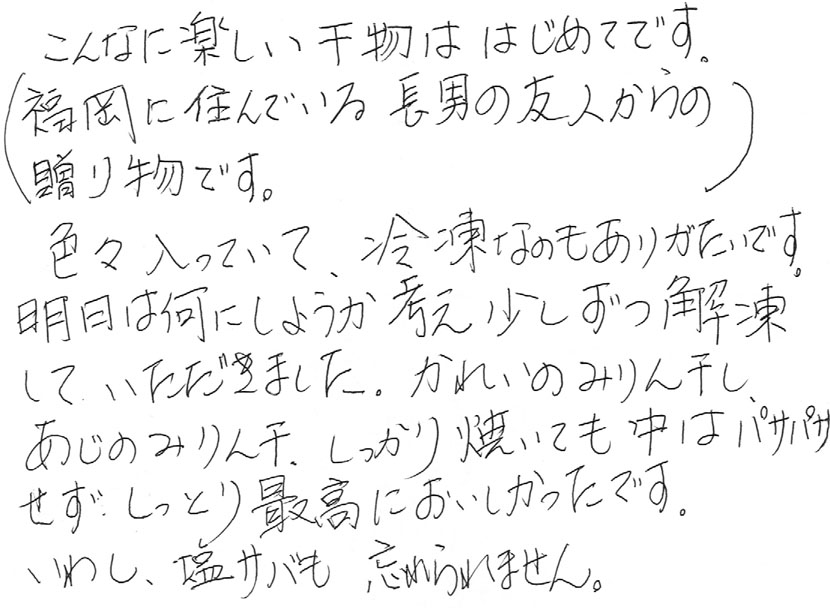 こんなに楽しい干物は はじめてです。
(福岡に住んでいる 長男の友人からの
贈り物です。)
色々入っていて、冷凍なのもありがたいです。
明日は何にしようか 考え 少しずつ 解凍
して いただきました。かれいのみりん干し、
あじのみりん干、しっかり 焼いても 中は パサパサ
せず しっとり 最高においしかったです。
いわし、塩サバも 忘れられません。